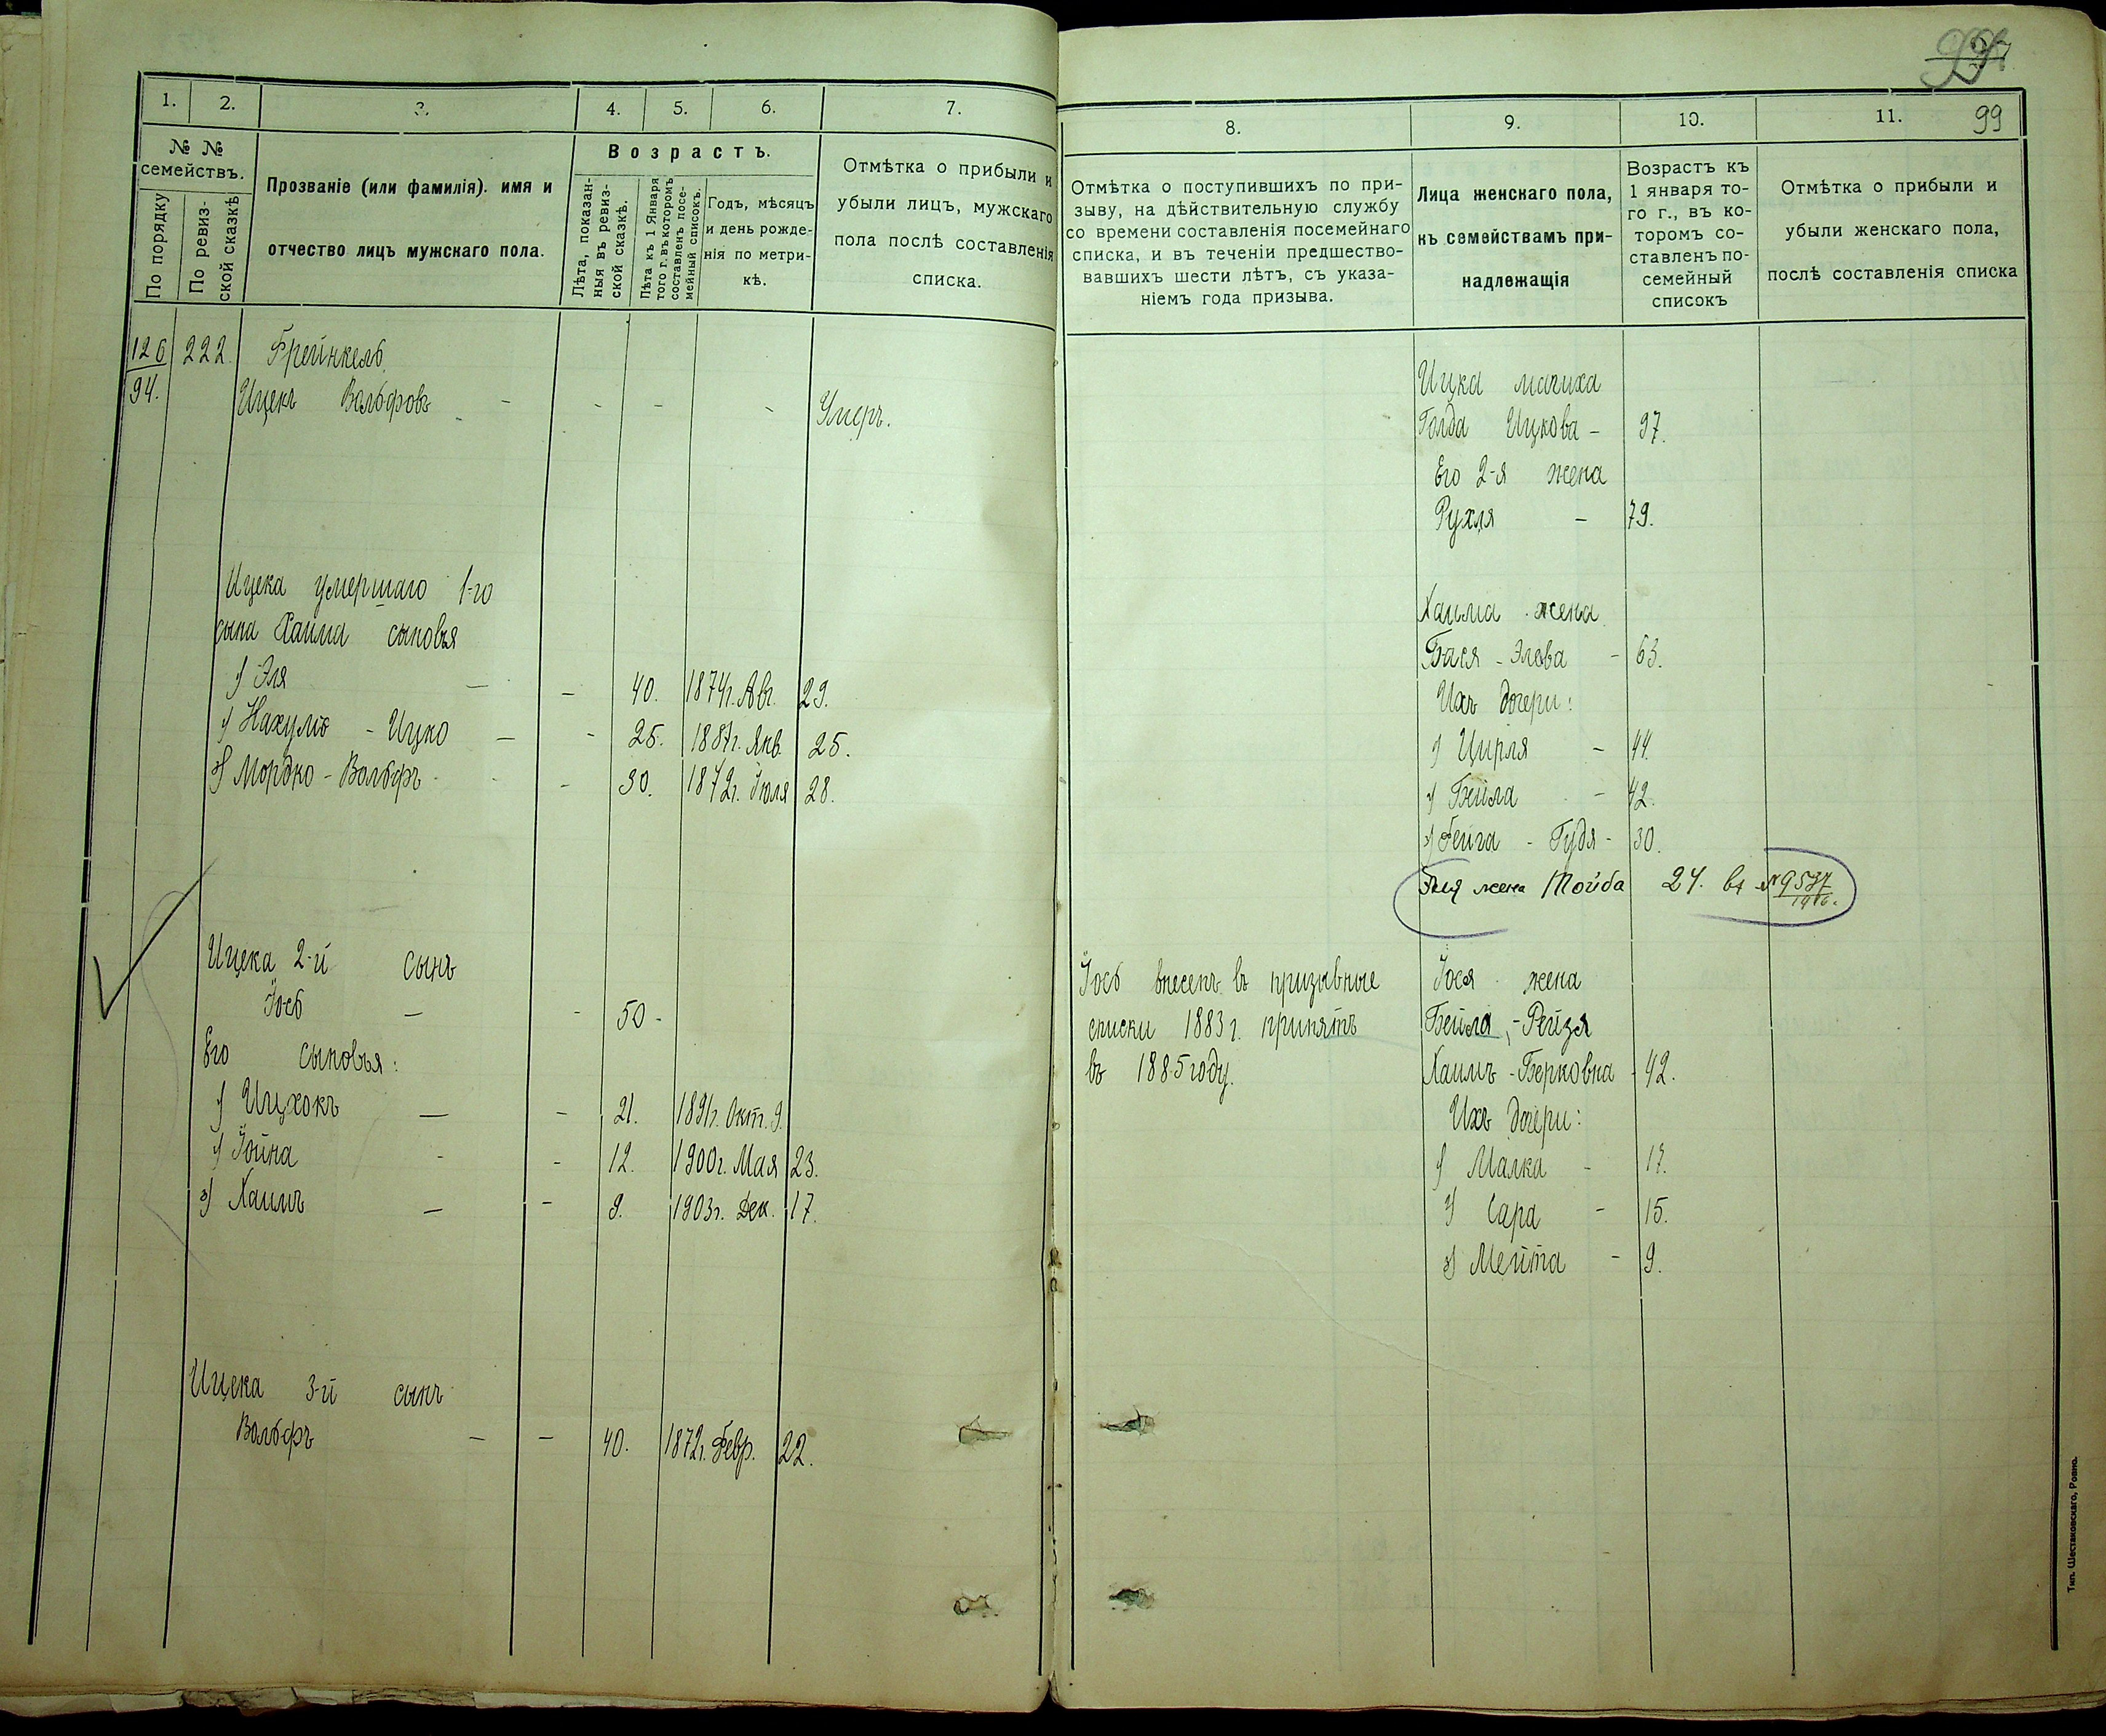 1.
2.
3.
4.
5.
6.
7.
№ №
семействъ.
По порядку
По ревиз-
ской сказкѣ
Прозваніе (или фамилія). имя и
отчество лицъ мужскаго пола.
Возрастъ.
Лѣта, показан-
ныя въ ревиз-
ской сказкѣ.
Лѣта къ 1 Января
того г. въ которомъ
составленъ посе-
мейный списокъ.
Годъ, мѣсяцъ
и день рожде-
нія по метри-
кѣ.
Отмѣтка о прибыли и
убыли лицъ, мужскаго
пола послѣ составленія
списка.
126 222. Грейнкель
94. Ицекъ Вольфовъ - - - - Умеръ.
Ицека умершаго 1-го
сына Хаима сыновья
1) Эля - - 40. 1874г. Авг. 29.
2) Нахумъ - Ицко - - 25. 1887г. Янв. 25.
3) Мордко - Вольфъ - - 30. 1872г. Іюля 28.
Ицека 2-й сынъ
Іось - - 50 -
Его сыновья:
1) Ицхокъ - - 21. 1891г. Окт. 9.
2) Іойна - - 12. 1900г. Мая 23.
3) Хаимъ - - 9. 1903г. Дек. 17.
Ицека 3-й сынъ
Вольфъ - - 40. 1872г. Февр. 22.
99
8.
9.
10.
11.
Отмѣтка о поступившихъ по при-
зыву, на дѣйствительную службу
со времени составленія посемейнаго
списка, и въ теченіи предшество-
вавшихъ шести лѣтъ, съ указа-
ніемъ года призыва.
Лица женскаго пола,
къ семействамъ при-
надлежащія
Возрастъ къ
1 января то-
го г., въ ко-
торомъ со-
ставленъ по-
семейный
списокъ
Отмѣтка о прибыли и
убыли женскаго пола,
послѣ составленія списка
Ицка мачиха
Голда Ицкова - 97.
Его 2-я жена
Рухля - 79.
Хаима жена
Бася - Элева - 63.
Ихъ дочери:
1) Цирля - 44.
2) Бейла - 42.
3) Фейга - Гудя - 30.
Эля жена Тойба 24. вх №
Іось внесенъ въ призывные
списки 1883 г. принятъ
въ 1885 году.
Іося жена
Бейла, - Рейзя
Хаимъ - Берковна - 42.
Ихъ дочери:
1) Малка - 17.
2) Сара - 15.
3) Мейта - 9.
Тип. Шестаковскаго, Ровно.